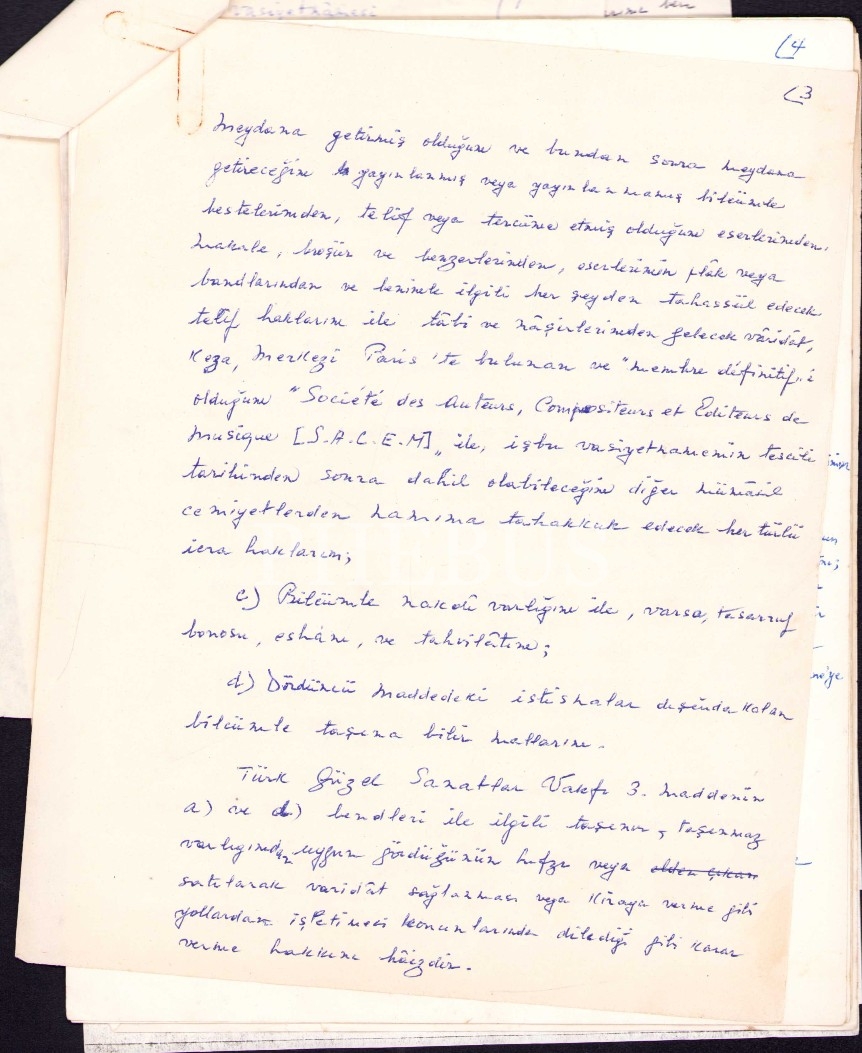 vasiyetnâmesi
4
3
Meydana getirmiş olduğum ve bundan sonra meydana
getireceğim yayınlanmış veya yayınlanmamış bilcümle
bestelerimden, telif veya tercüme etmiş olduğum eserlerimden,
makale, broşür ve benzerlerinden, eserlerimin plâk veya
bandlarından ve benimle ilgili her şeyden tahassül edecek
telif haklarım ile tâbi ve nâşirlerimden gelecek vâridât,
Keza, Merkezi Paris'te bulunan ve "membre définitif"i
olduğum "Société des Auteurs, Compositeurs et Editeurs de
musique [S.A.C.E.M]" ile, işbu vasiyetnamemin tescili
tarihinden sonra dahil olabileceğim diğer mümâsil
cemiyetlerden namıma tahakkuk edecek her türlü
icra haklarım;
c) Bilcümle nakdî varlığım ile, varsa, tasarruf
bonosu, eshâm, ve tahvilâtım;
d) Dördüncü maddedeki istisnalar dışında kalan
bilcümle taşına bilir mallarım.
Türk Güzel Sanatlar Vakfı 3. maddenin
a) ve d) bendleri ile ilgili taşınır, taşınmaz
varlığımdan uygun gördüğünün hıfzı veya elden çıkarı
satılarak varidât sağlanması veya kiraya verme gibi
yollardan işletilmesi konularında dilediği gibi karar
verme hakkını hâizdir.